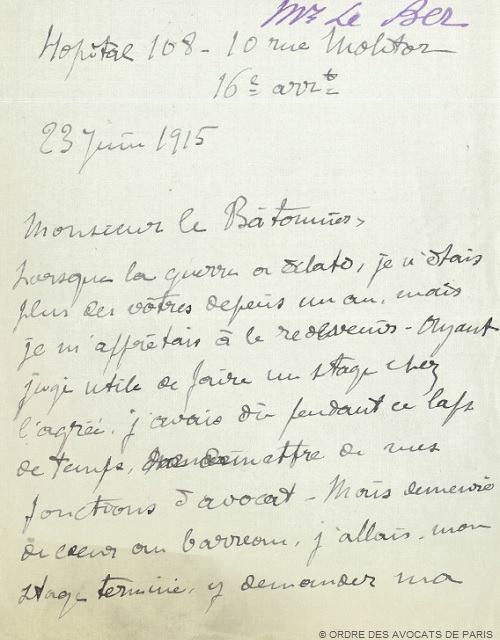 Mr Le Ber
Hopital 108 - 10 rue Molitor
16e arrt
23 juin 1915
Monsieur le Bâtonnier,
Lorsque la guerre a éclaté, je n'étais
plus des vôtres depuis un an, mais
je m'apprêtais à le redevenir - Ayant
jugé utile de faire un stage chez
l'agréé, j'avais dû pendant ce laps
de temps, me démettre de mes
fonctions d'avocat - Mais demeuré
de coeur au barreau, j'allais, mon
stage terminé, y demander ma
© ORDRE DES AVOCATS DE PARIS